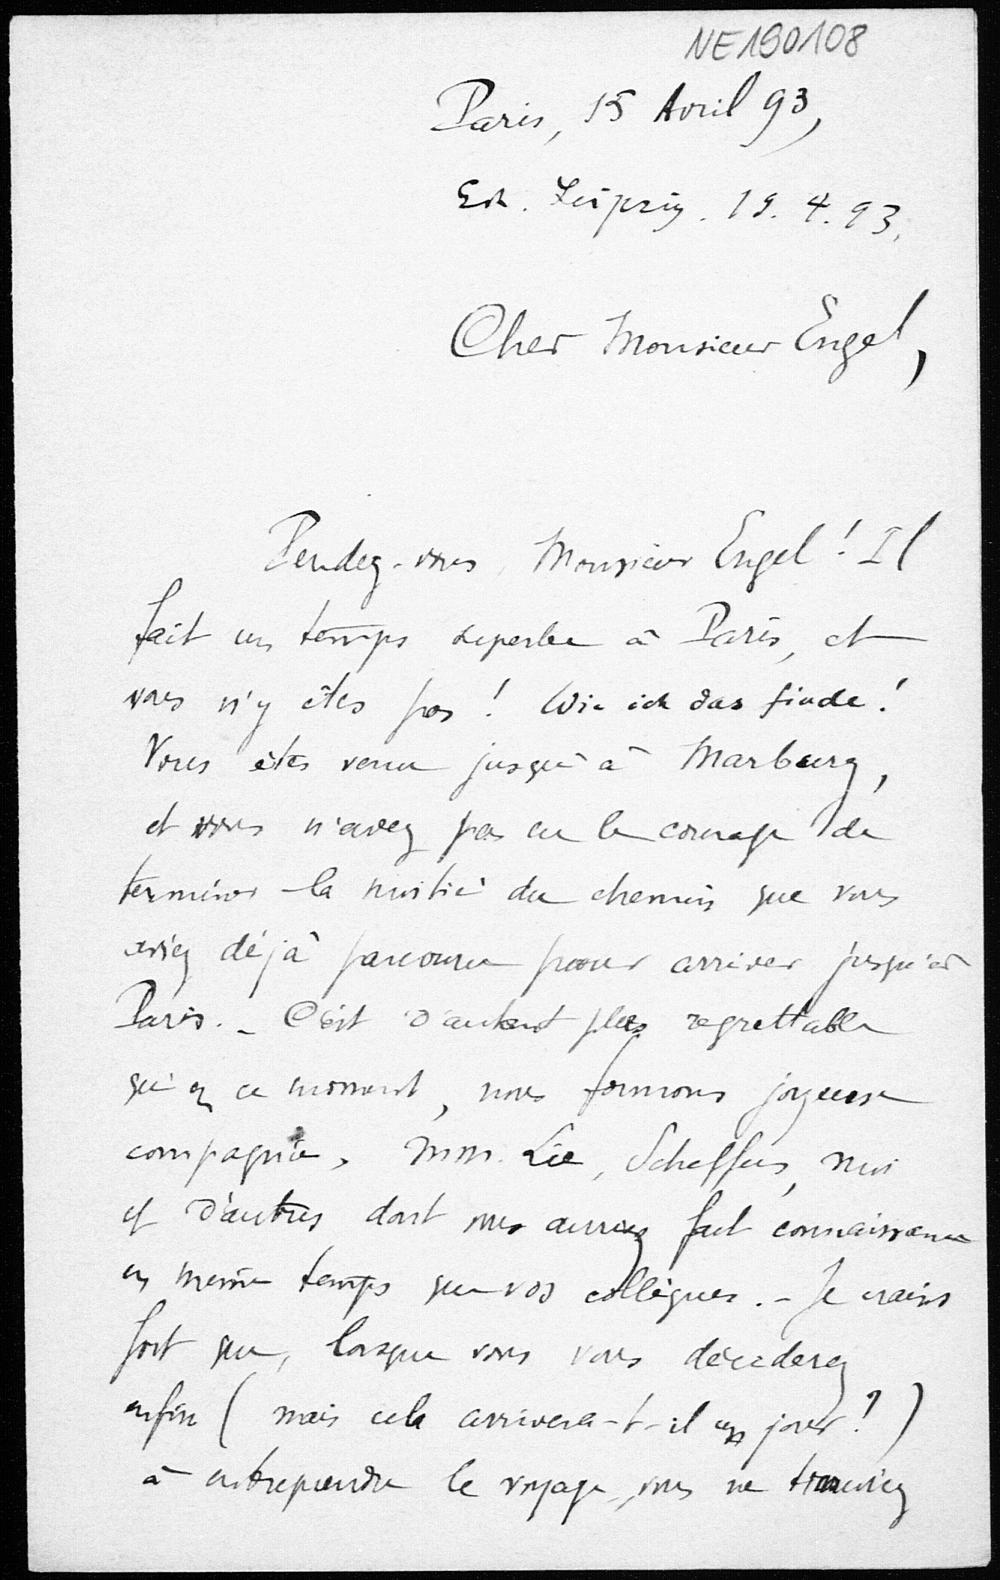 NE190108
Paris, 15 Avril 93,
Erh. Leipzig. 19. 4. 93.
Cher Monsieur Engel,
Pendez-vous, Monsieur Engel ! Il
fait un temps superbe à Paris, et
vous n'y êtes pas ! Wie ich das finde !
Vous êtes venu jusqu'à Marburg,
et vous n'avez pas eu le courage de
terminer la moitié du chemin que vous
aviez déjà parcouru pour arriver jusqu'à
Paris. – C'est d'autant plus regrettable
qu'en ce moment, nous formons joyeuse
compagnie, MM. Lie, Scheffers, moi
et d'autres dont vous auriez fait connaissance
en même temps que vos collègues. – Je crains
fort que, lorsque vous vous déciderez
enfin ( mais cela arrivera-t-il un jour ? )
à entreprendre le voyage, vous ne trouviez